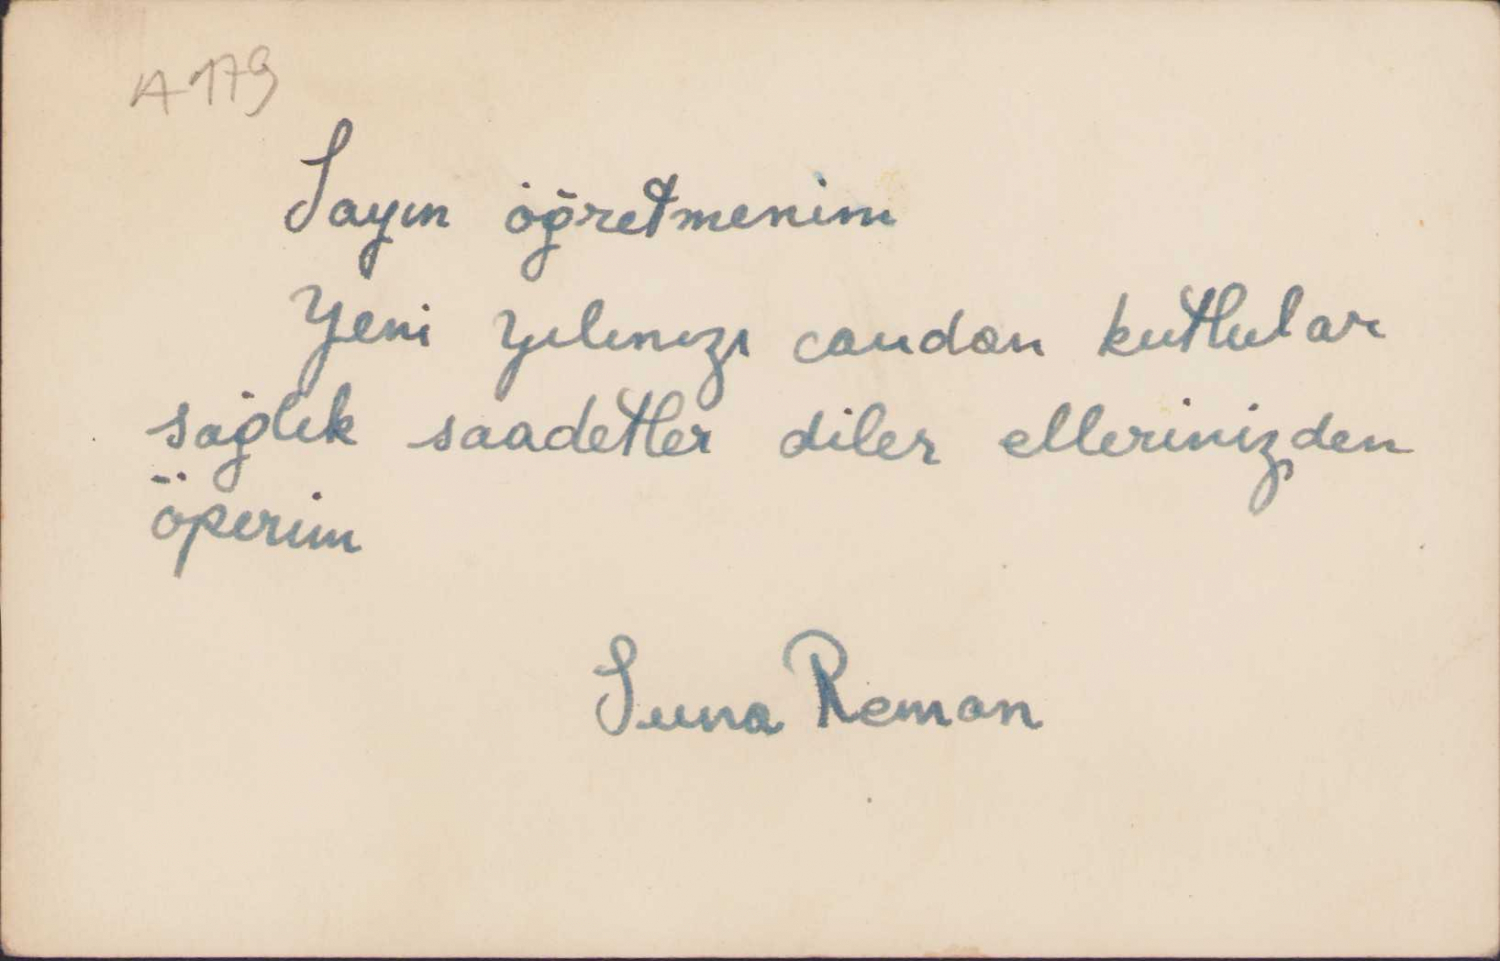 A 179
Sayın öğretmenim
Yeni yılınızı candan kutlular
sağlık saadetler diler ellerinizden
öperim
Suna Reman